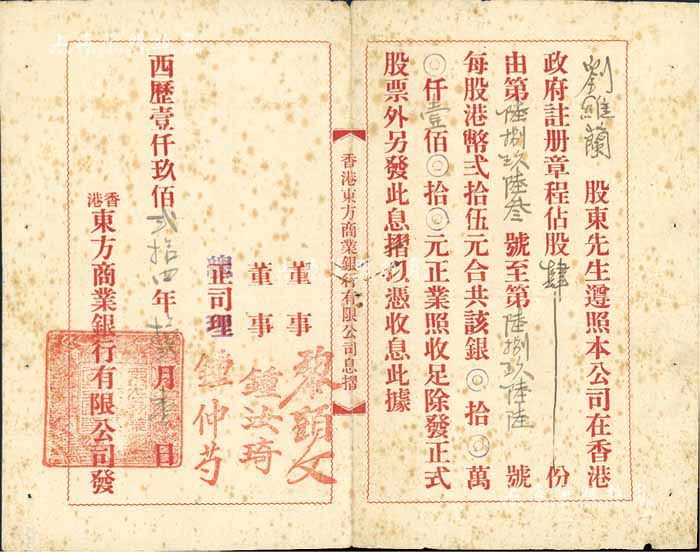 劉維蘭 股東先生遵照本公司在香港
政府註册章程佔股肆份
由第陸捌玖陸叁號至第陸捌玖陸陸號
每股港幣弍拾伍元合共該銀○拾○萬
○仟壹佰○拾○元正業照收足除發正式
股票外另發此息摺以憑收息此據
香港東方商業銀行有限公司息摺
董事 黎頭文
董事 鍾汝琦
正司理 鍾仲芍
西歷壹仟玖佰弍拾四年拾弍月壹日
香港東方商業銀行有限公司發